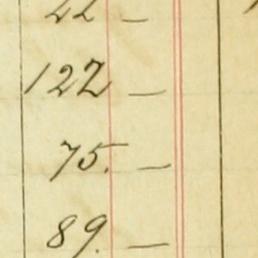 22 —
122 —
75. —
89. —